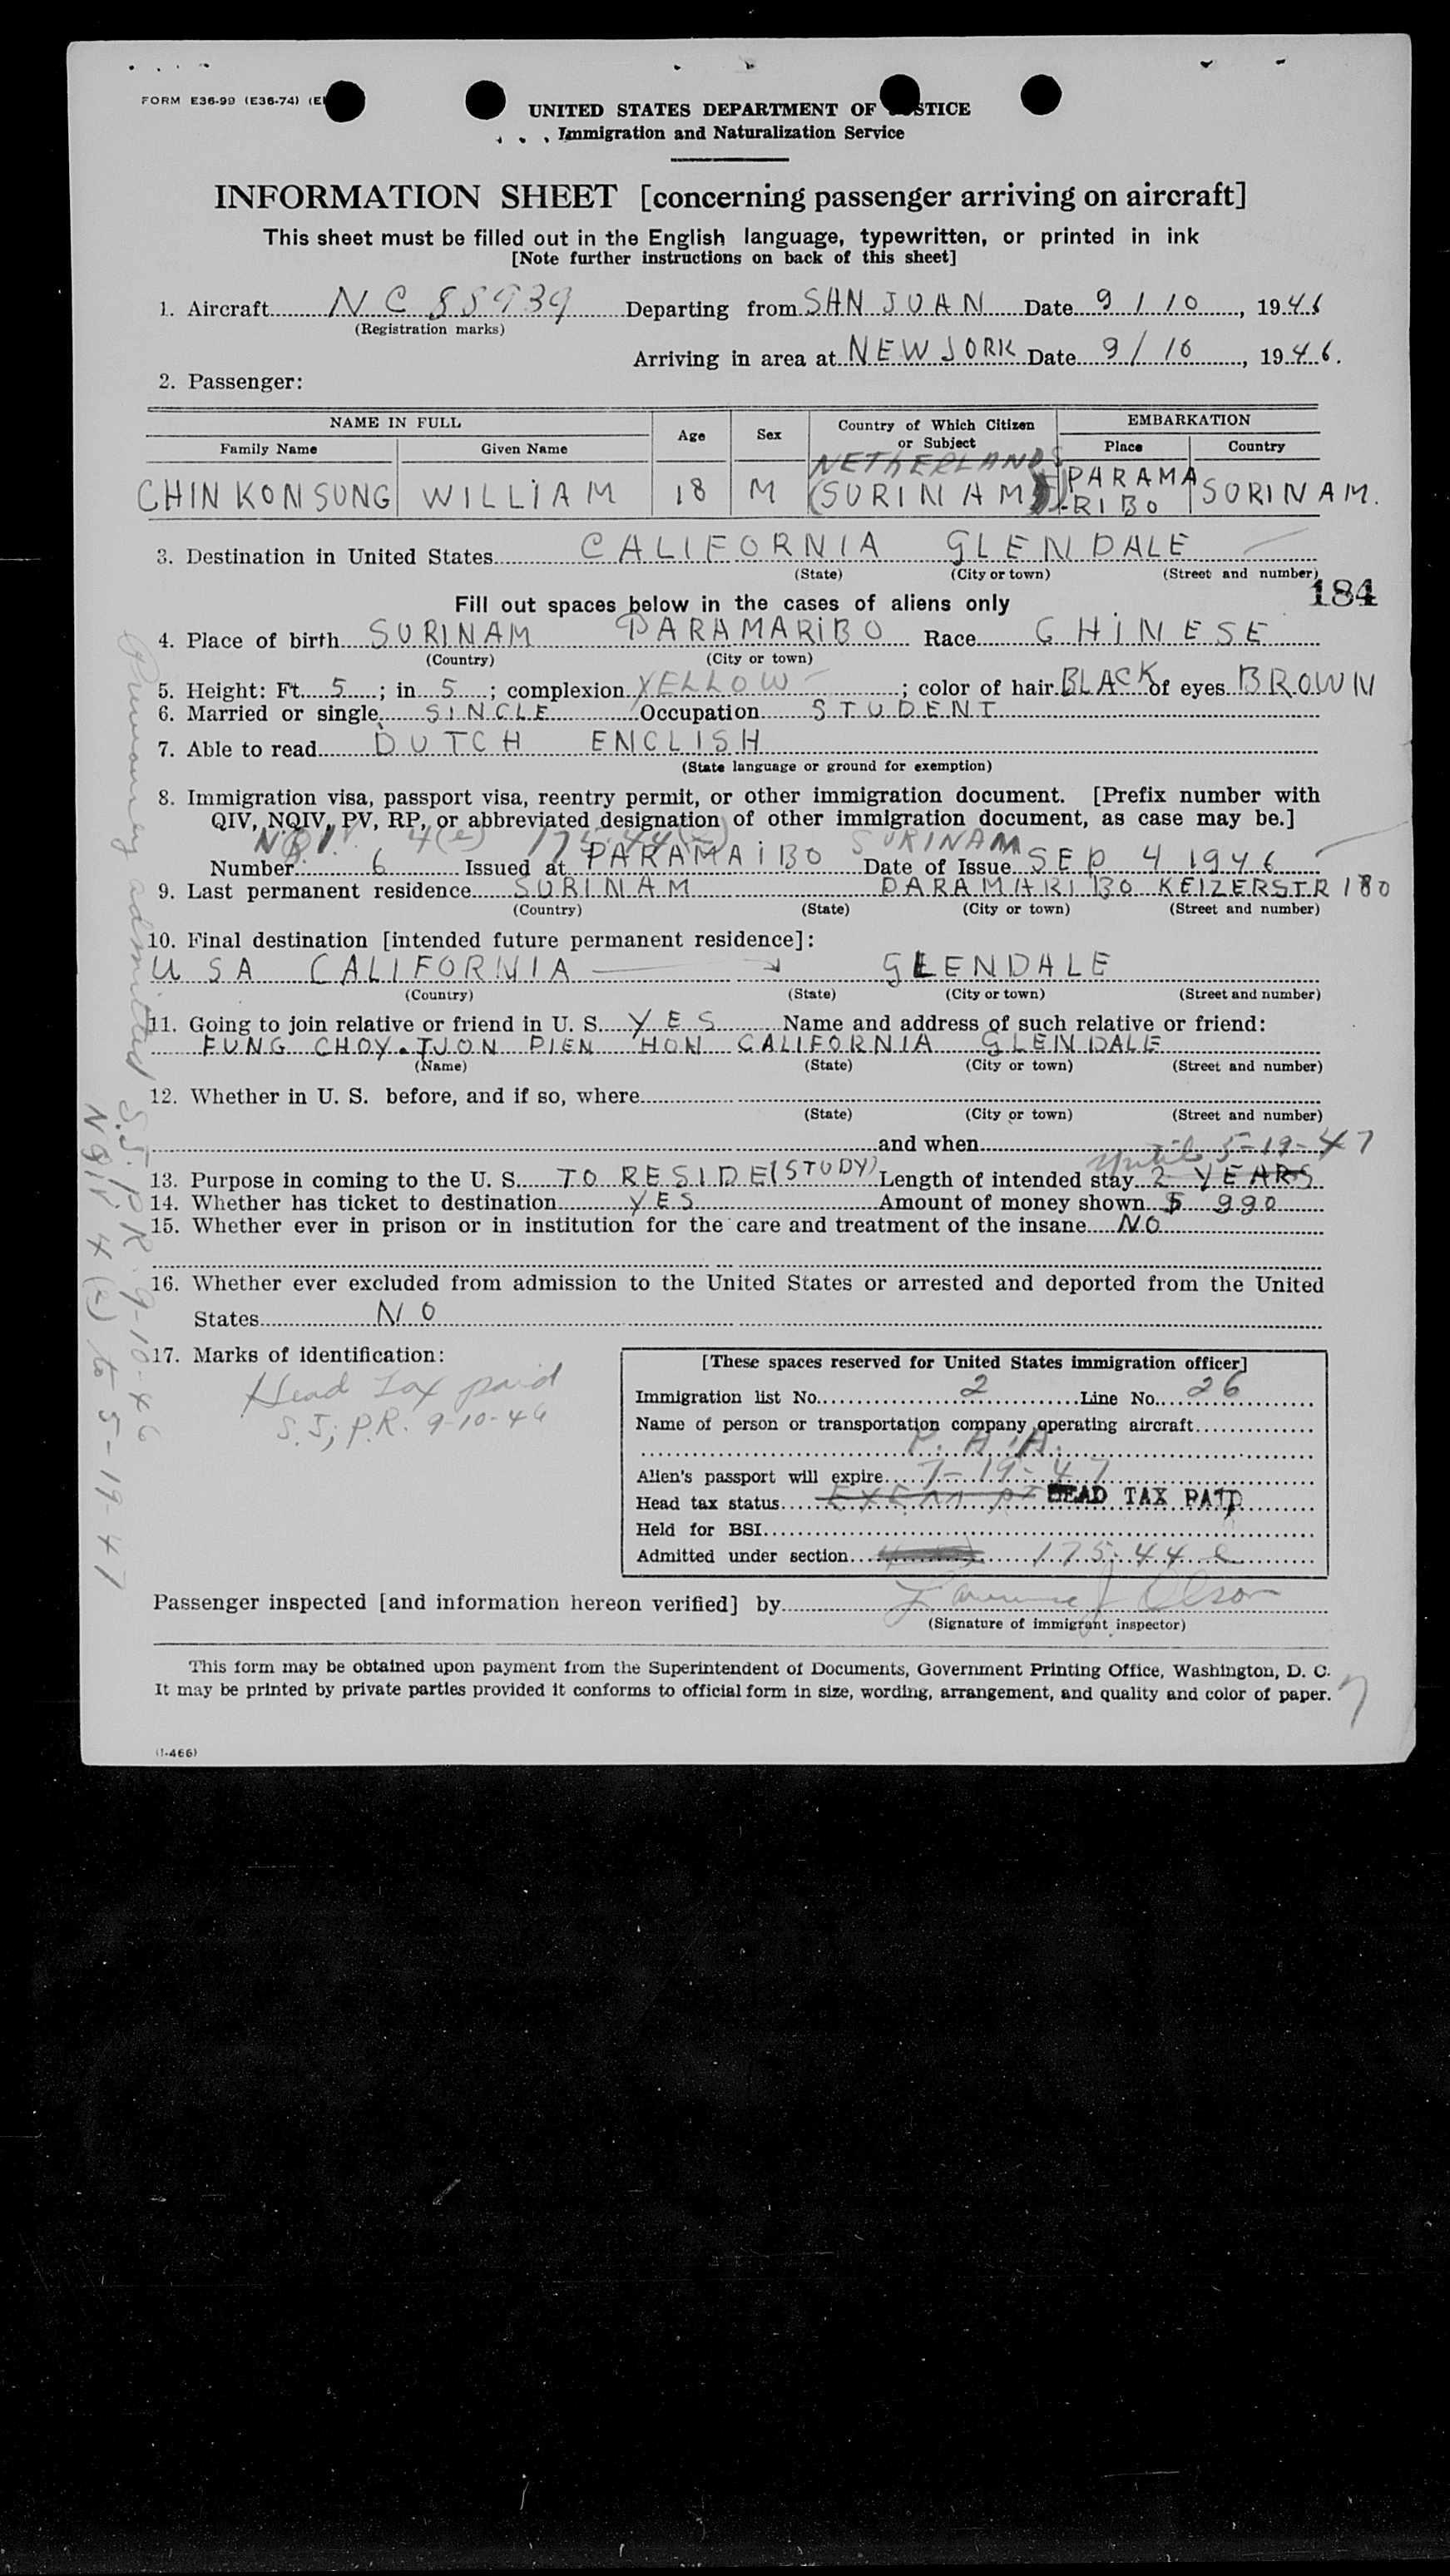 FORM E36-99 (E36-74)
UNITED STATES DEPARTMENT OF STICE
Immigration and Naturalization Service
INFORMATION SHEET [concerning passenger arriving on aircraft]
This sheet must be filled out in the English language, typewritten, or printed in ink
[Note further instructions on back of this sheet]
1. Aircraft NC 88939 Departing from SAN JUAN Date 9/10, 1946
(Registration marks)
Arriving in area at NEW JORK Date 9/10, 1946.
2. Passenger:
NAME IN FULL Age Sex Country of Which Citizen or Subject EMBARKATION
Family Name Given Name Place Country
NETHERLANDS
CHIN KON SUNG WILLIAM 18 M (SURINAM) PARAMA-RIBO SURINAM.
3. Destination in United States CALIFORNIA GLENDALE
(State) (City or town) (Street and number)
184
Fill out spaces below in the cases of aliens only
4. Place of birth SURINAM PARAMARIBO Race CHINESE
(Country) (City or town)
5. Height: Ft. 5; in 5; complexion YELLOW; color of hair BLACK of eyes BROWN
6. Married or single SINGLE Occupation STUDENT
7. Able to read DUTCH ENGLISH
(State language or ground for exemption)
8. Immigration visa, passport visa, reentry permit, or other immigration document. [Prefix number with
QIV, NQIV, PV, RP, or abbreviated designation of other immigration document, as case may be.]
NQIV 4(e) 175.44(e) SURINAM
Number 6 Issued at PARAMAIBO Date of Issue SEP 4 1946
9. Last permanent residence SURINAM PARAMARIBO KEIZERSTR 180
(Country) (State) (City or town) (Street and number)
10. Final destination [intended future permanent residence]:
USA CALIFORNIA GLENDALE
(Country) (State) (City or town) (Street and number)
11. Going to join relative or friend in U. S. YES Name and address of such relative or friend:
FUNG CHOY. TJON PIEN HON CALIFORNIA GLENDALE
(Name) (State) (City or town) (Street and number)
12. Whether in U. S. before, and if so, where
(State) (City or town) (Street and number)
and when
until 5-19-47
13. Purpose in coming to the U. S. TO RESIDE (STUDY) Length of intended stay 2 YEARS
14. Whether has ticket to destination YES Amount of money shown $ 990
15. Whether ever in prison or in institution for the care and treatment of the insane NO
16. Whether ever excluded from admission to the United States or arrested and deported from the United
States NO
17. Marks of identification:
Head Tax paid
S.J; P.R. 9-10-46
[These spaces reserved for United States immigration officer]
Immigration list No. 2 Line No. 26
Name of person or transportation company operating aircraft
P. A. A.
Alien's passport will expire 7-19-47
Head tax status Exempt HEAD TAX PAID
Held for BSI
Admitted under section 175.44 e
Passenger inspected [and information hereon verified] by Lawrence J Olson
(Signature of immigrant inspector)
This form may be obtained upon payment from the Superintendent of Documents, Government Printing Office, Washington, D. C.
It may be printed by private parties provided it conforms to official form in size, wording, arrangement, and quality and color of paper.
(1-466)
admitted
S.J. P.R. 9-10-46
NQIV 4(e) to 5-19-47